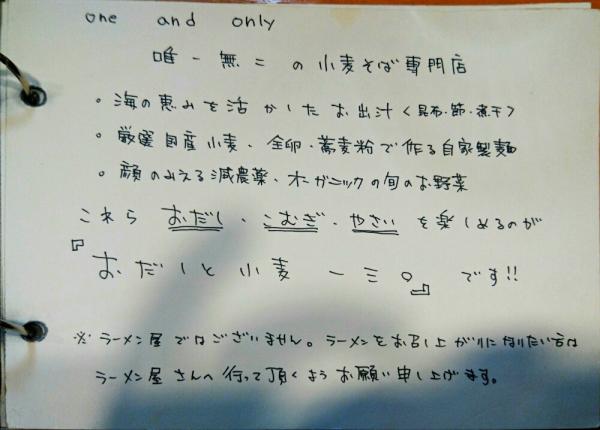 one and only
唯一無二の小麦そば専門店
。海の恵みを活かしたお出汁〈昆布・節・煮干〉
。厳選国産小麦、全卵・蕎麦粉で作る自家製麺
。顔のみえる減農薬、オーガニックの旬のお野菜
これら おだし、こむぎ、やさい を楽しめるのが
『おだしと小麦 一三〇』です!!
※ラーメン屋ではございません。ラーメンをお召し上がりになりたい方は
ラーメン屋さんへ行って頂くようお願い申し上げます。